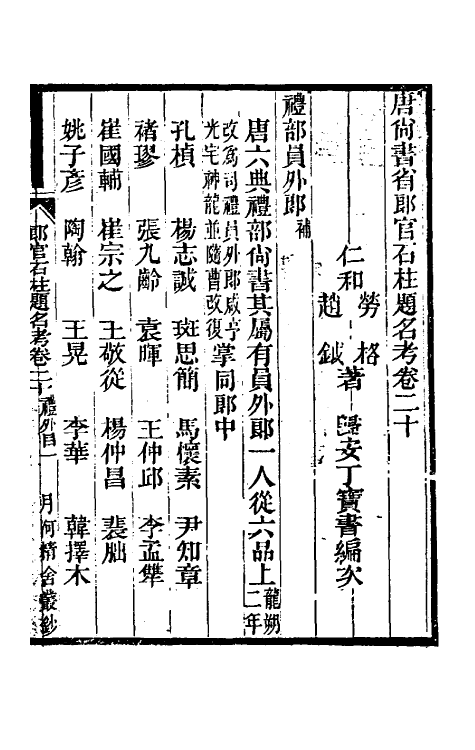 唐尙書省郎官石柱題名考卷二十
仁和 勞格 趙鉞 著 歸安丁寶書編次
禮部員外郎補
唐六典禮部尙書其屬有員外郎一人從六品上龍朔二年
改爲司禮員外郎咸亨光宅神龍並隨曹改復掌同郎中
孔楨 楊志誠 班思簡 馬懷素 尹知章
褚璆 張九齡 袁暉 王仲邱 李孟犨
崔國輔 崔宗之 王敬從 楊仲昌 裴朏
姚子彥 陶翰 王晃 李華 韓擇木
郎官石柱題名考卷二十 禮外目一 月河精舍叢鈔